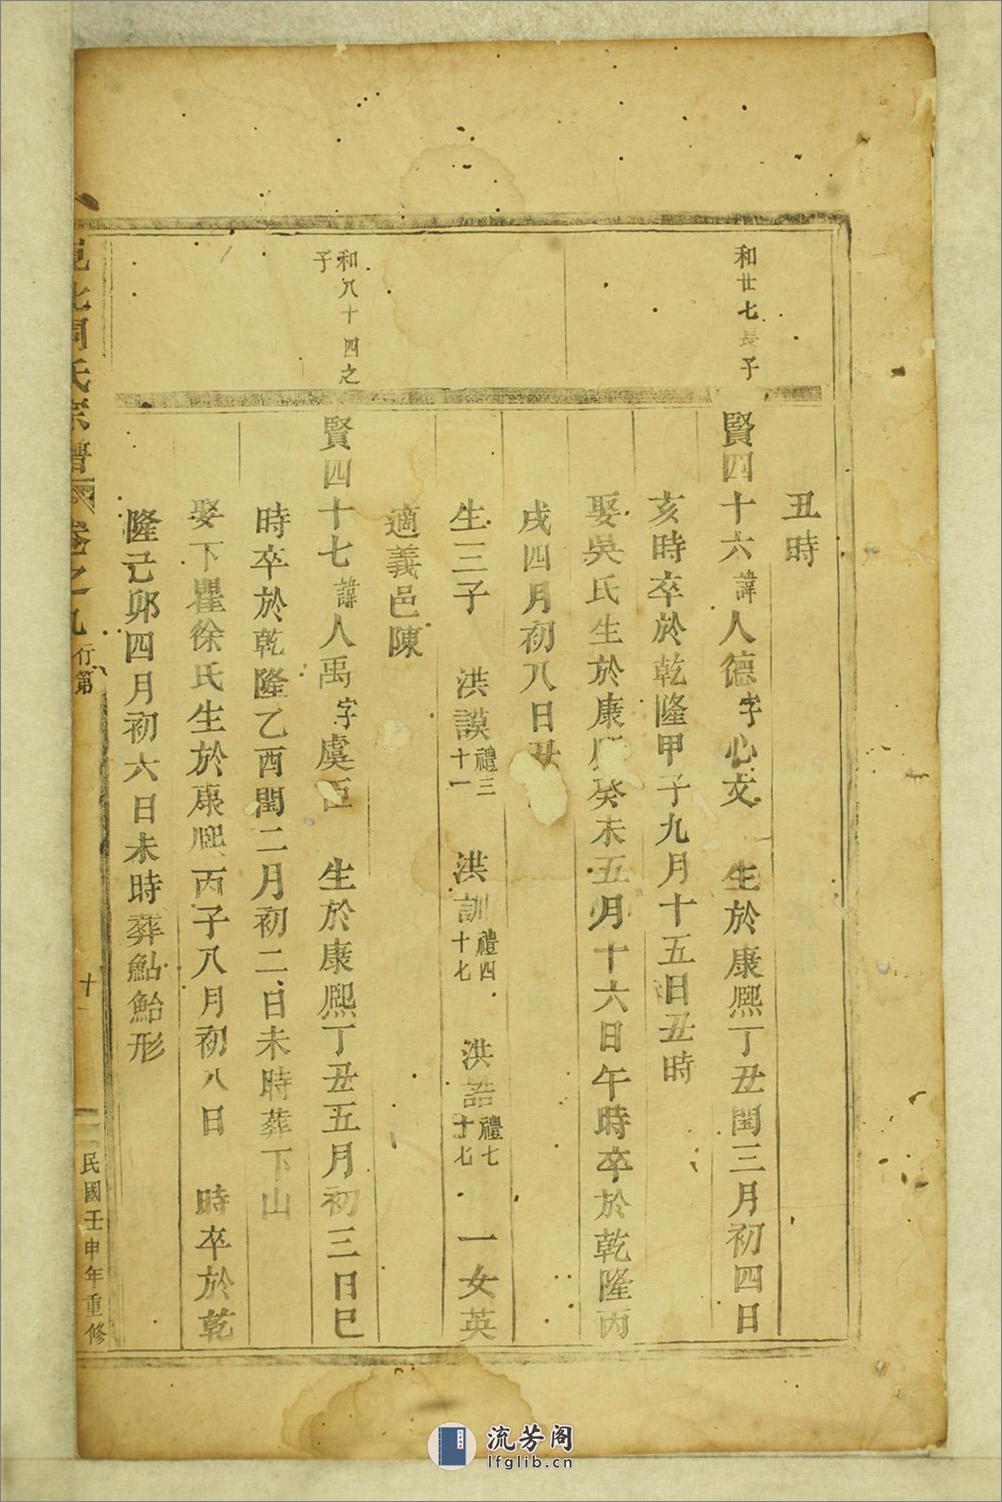 丑時
和廿七長子
賢四十六諱人德字心文 生於康熙丁丑閏三月初四日
亥時卒於乾隆甲子九月十五日丑時
娶吳氏生於康 癸未五月十六日午時卒於乾隆丙
戌四月初八日丑
生三子 洪謨禮三十一 洪訓禮四十七 洪誥禮七十七 一女英
適義邑陳
和八十四之子
賢四十七諱人禹字虞臣 生於康熙丁丑五月初三日巳
時卒於乾隆乙酉閏二月初二日未時葬下山
娶下瞿徐氏生於康熙丙子八月初八日 時卒於乾
隆己卯四月初六日未時葬鮎鮐形
氏宗譜 卷之九 行第 十 民國壬申年重修
流芳阁
lfglib.cn